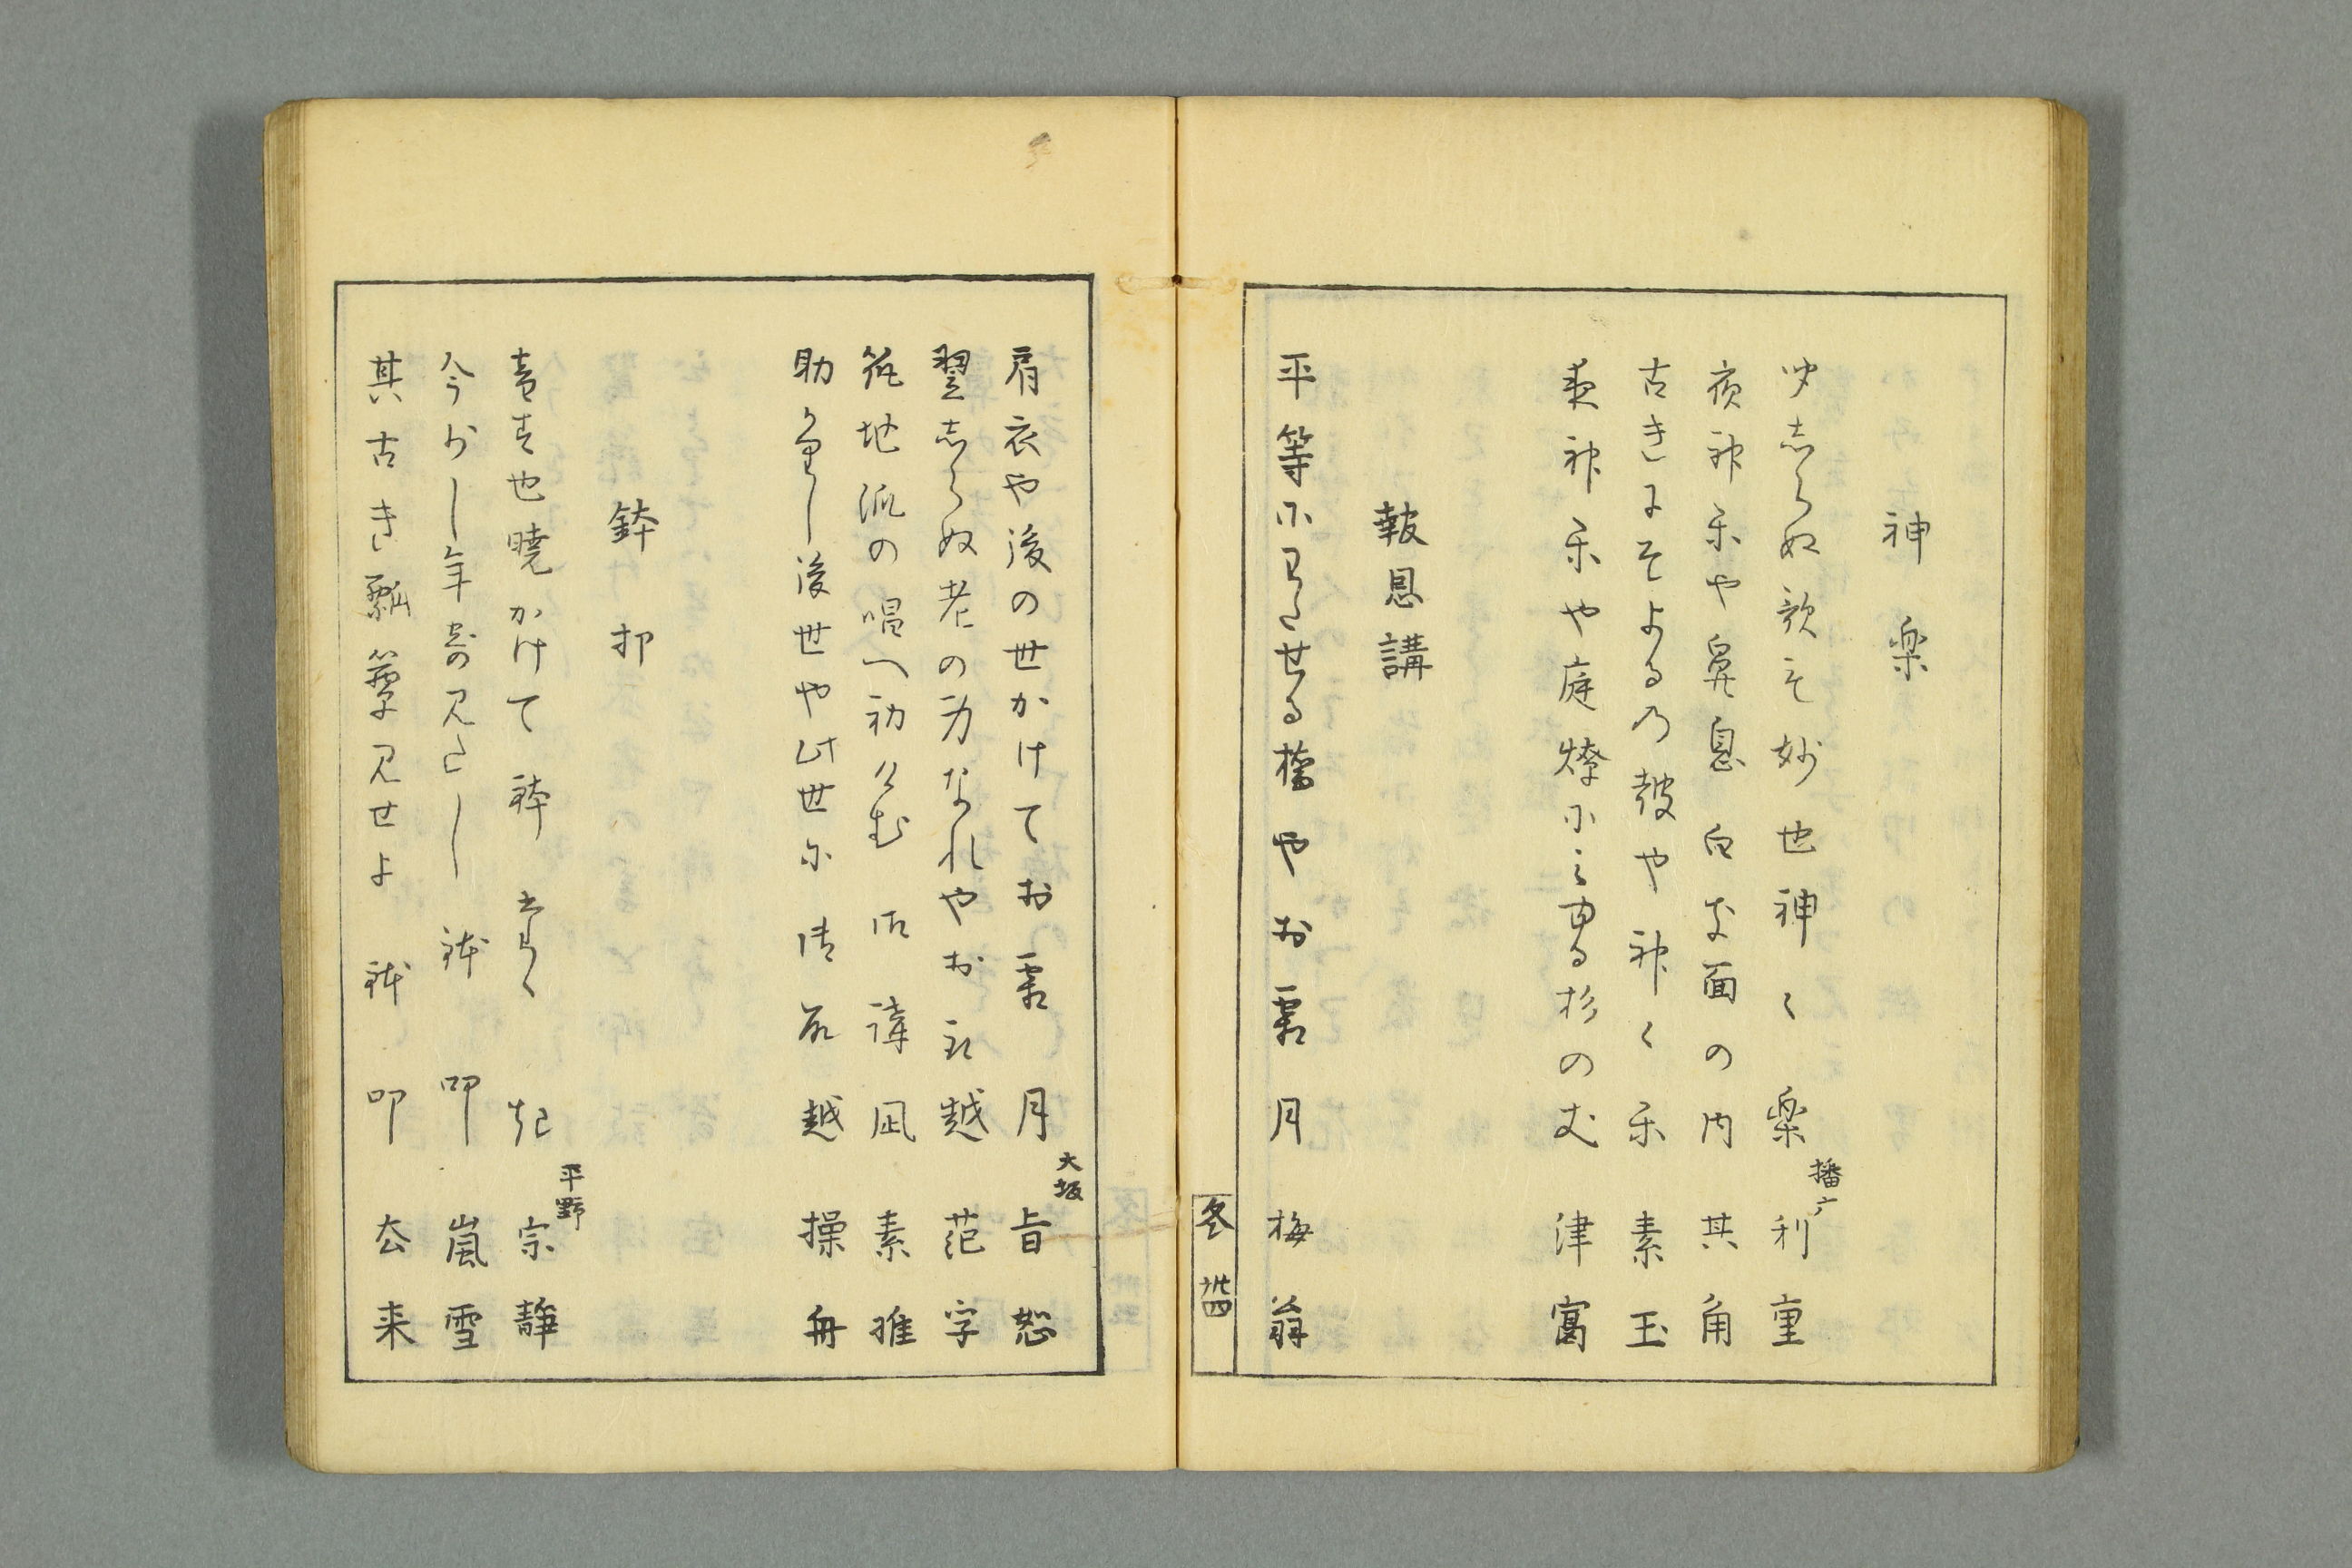 神楽
聞しらぬ歌も妙也神〻楽 播广 利重
夜神楽や鼻息白き面の内 其角
古きにそよるの鼓や神〻楽 素玉
夷神楽や庭燎に之める杉の丈 津富
報恩講
平等にわたせる橋やお霜月 梅翁
冬 卅四
肩衣や後の世かけてお霜月 大坂 旨恕
翌しらぬ老の身なれやお取越 范字
筑地派の唱へ初けむ御講凪 素推
助らし後世や此世に清取越 操舟
鉢扣
音す也暁かけて鉢たゝく起 平野 宗静
今少し年寄見たし鉢叩 嵐雪
其古き瓢箪見せよ鉢叩 去来